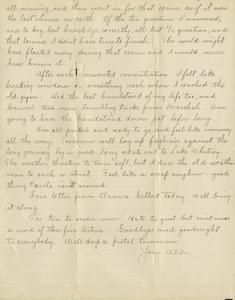 all morning, and then went in for that exam as if it now
the last chance on earth. Of the ten questions I answered,
and to my best knowledge correctly, all but 1/2 question, and
that because I didn't have time to finish. The world might
have floated away during that exam and I would never
have known it.
After such concentration I felt like
breaking windows or something rash when I reached the
old gym. Did the best handstand of my life too, and
learned two new tumbling tricks from Marshall. Am
going to have the handstand down pat before long.
Am all packed and ready to go, and feel like running
all the way. Tomorrow will lay up against the
long journey by a good long with Whitney.
The weather threatens to turn soft, but I dare the old weather
man to such a stunt. Feel like a scrap anyhow. good
thing Carola isn't around.
Fine letter from Gilbert today. Will bring
it along.
Five ten to seven now. Hate to quit but must
a week of these fine letters. Goodbye and goodnight
to everybody. Will drop a postal tomorrow